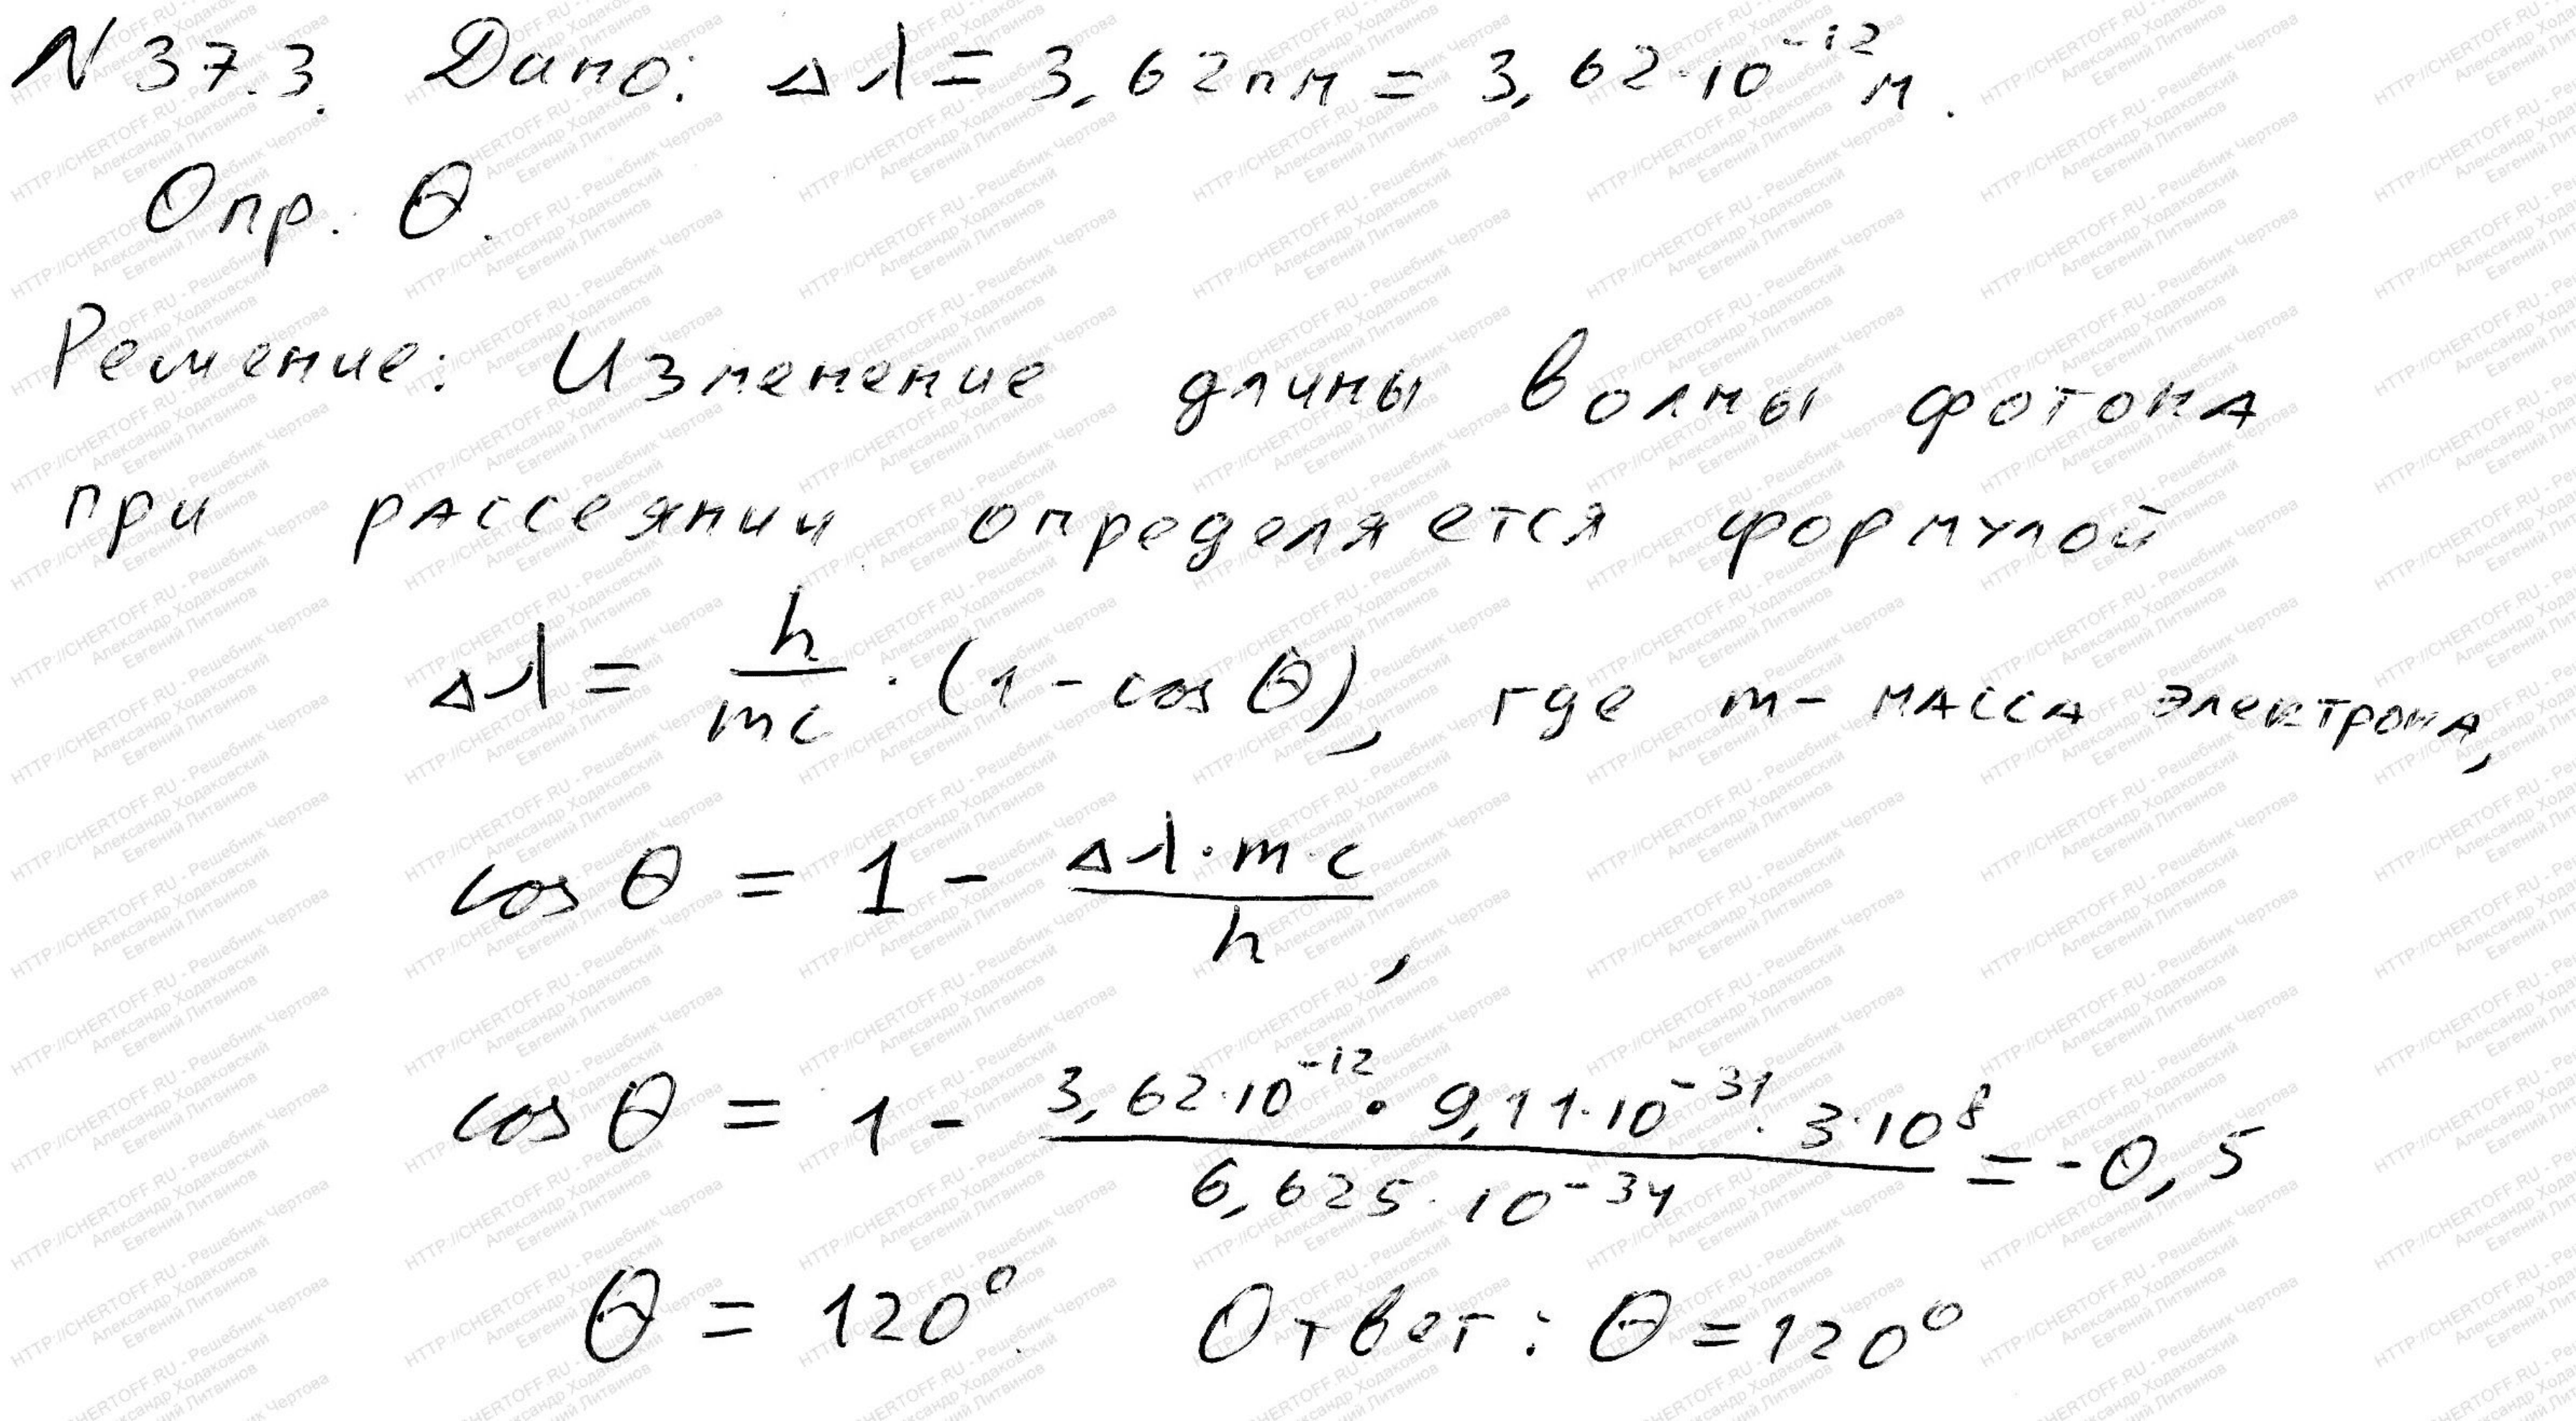 N 37.3. Дано: Δλ = 3,62 пм = 3,62·10⁻¹² м.
Опр. θ.
Решение: Изменение длины волны фотона
при рассеянии определяется формулой
Δλ = h/mc · (1 - cos θ), где m - масса электрона,
cos θ = 1 - Δλ·m·c/h,
cos θ = 1 - 3,62·10⁻¹² · 9,11·10⁻³¹ · 3·10⁸ / 6,625·10⁻³⁴ = -0,5
θ = 120° Ответ: θ = 120°
HTTP://CHERTOFF.RU - Решебник Чертова
Александр Ходаковский
Евгений Литвинов